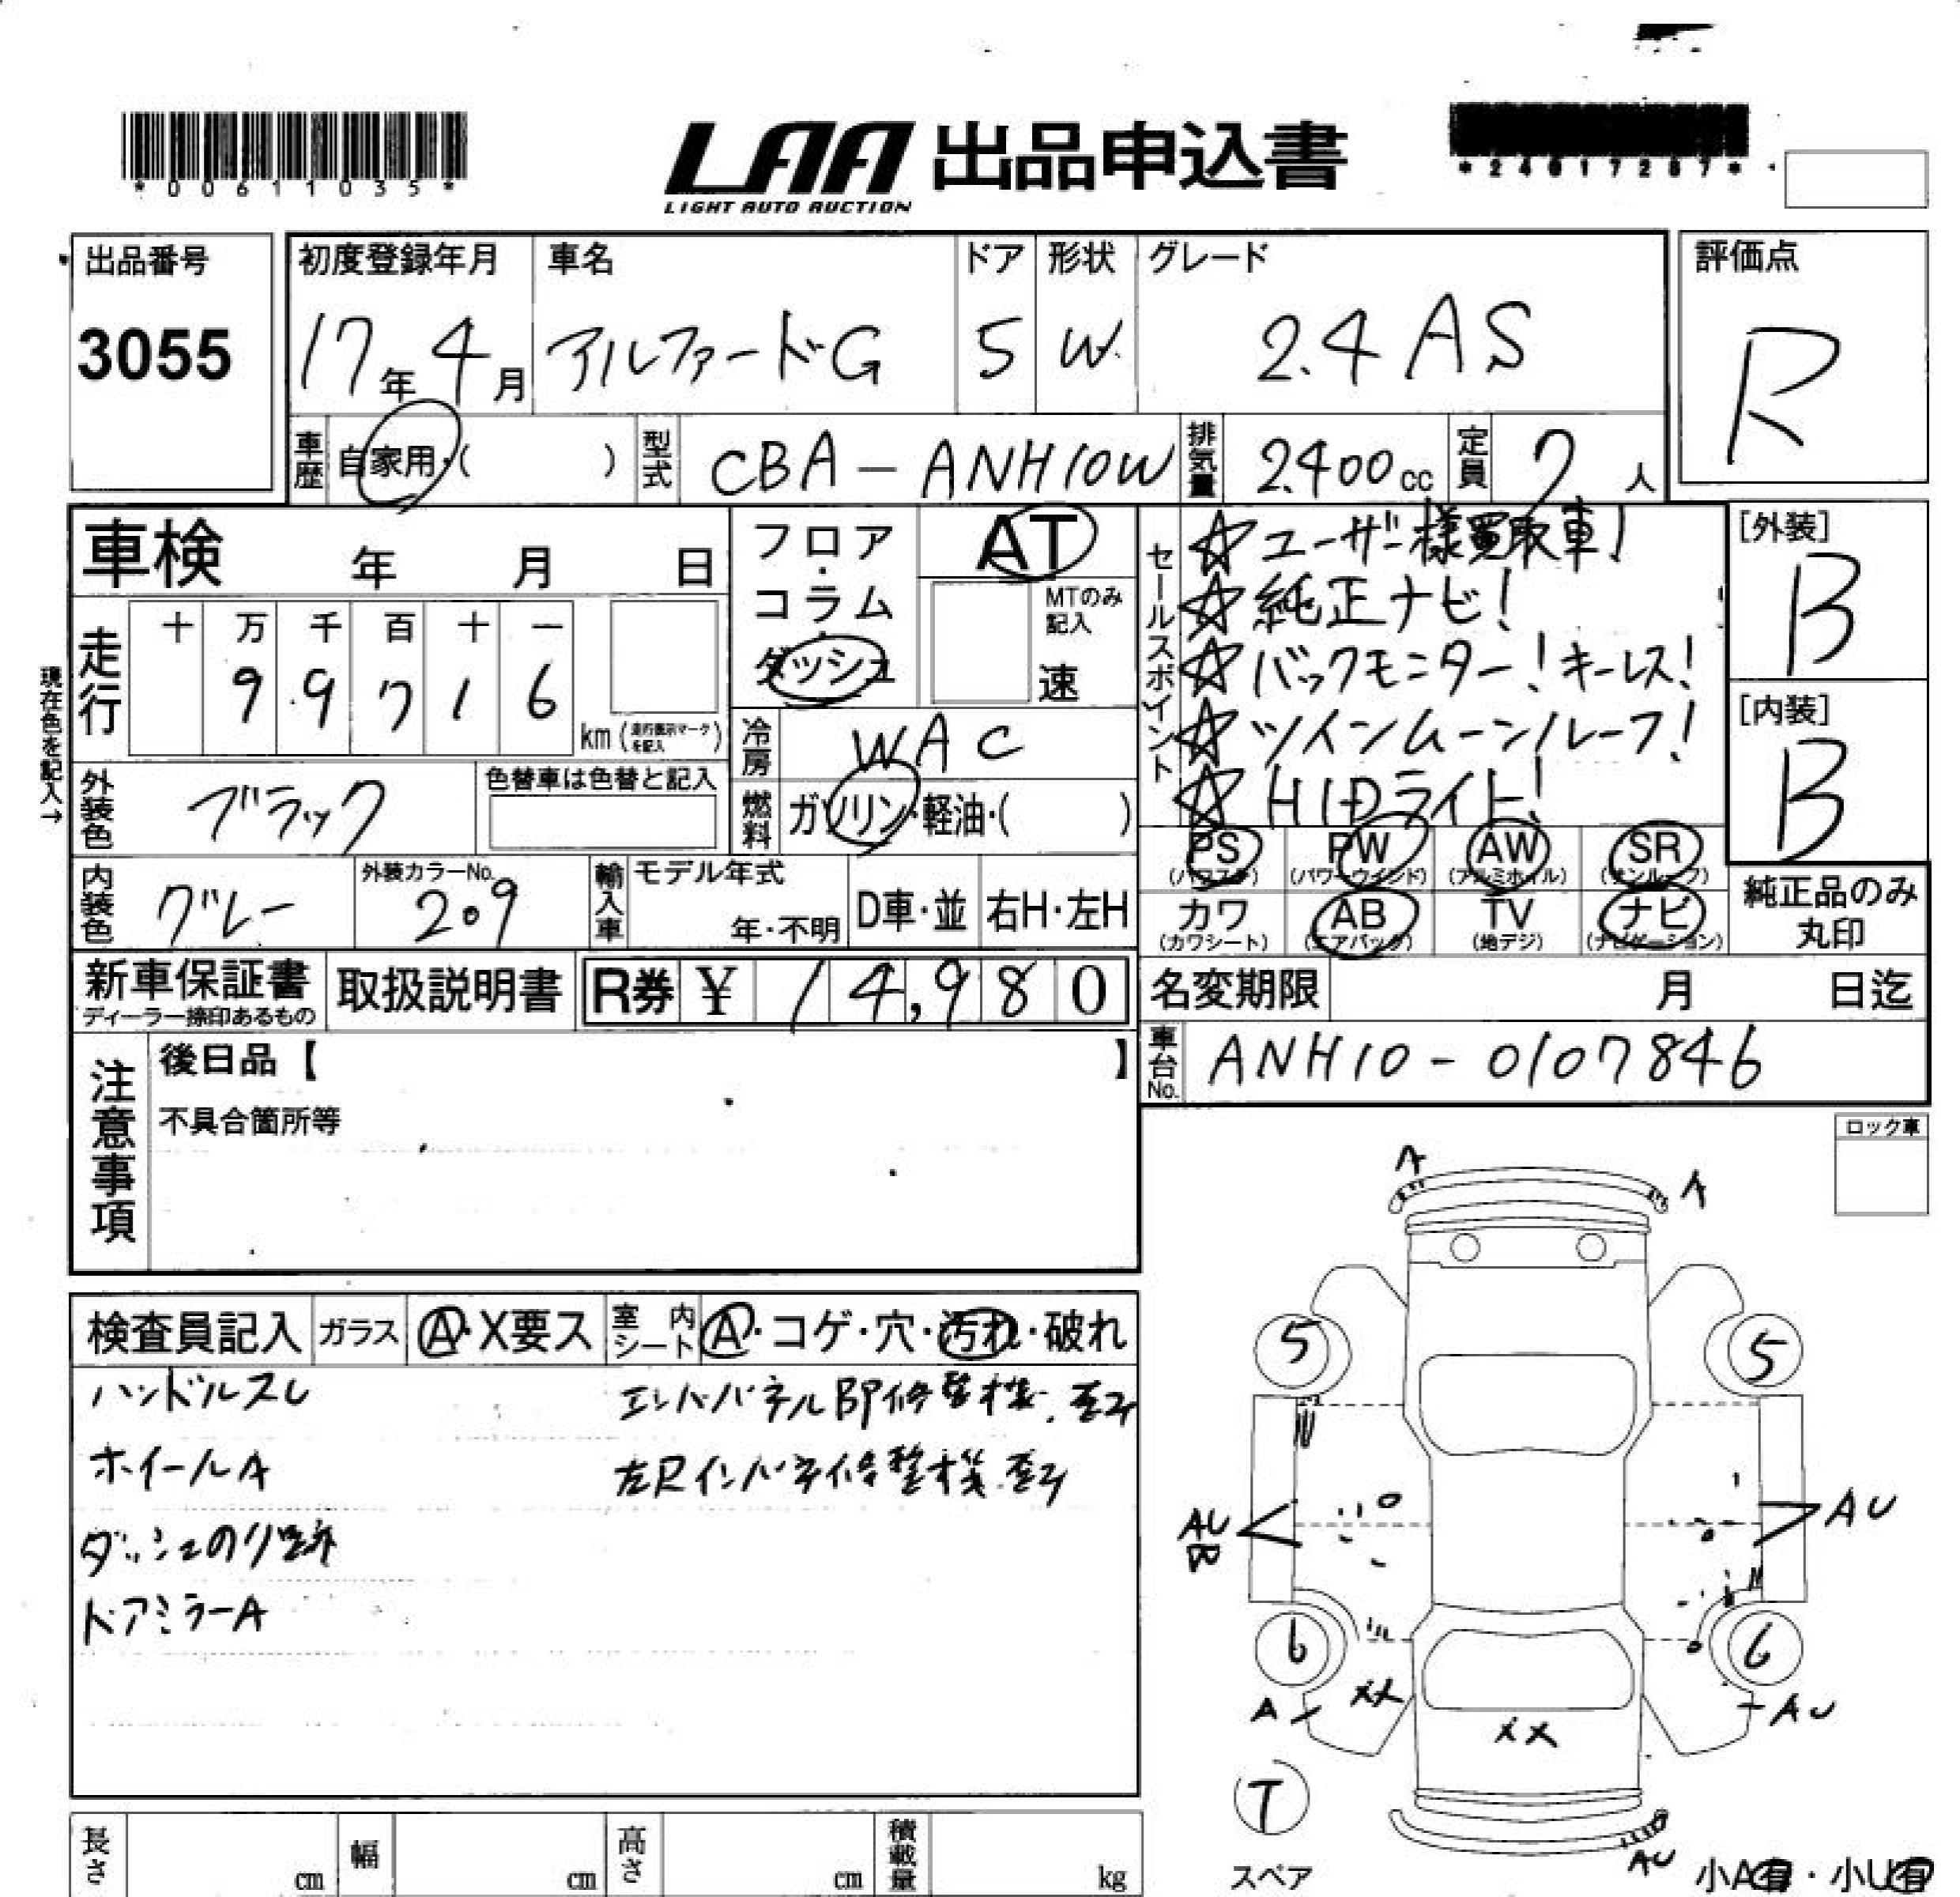 *00611035*
LAA 出品申込書
LIGHT AUTO AUCTION
出品番号
3055
初度登録年月
17年4月
車名
アルファードG
ドア
5
形状
W
グレード
2.4 AS
評価点
R
車歴
自家用・( )
型式
CBA-ANH10W
排気量
2400cc
定員
7人
車検 年 月 日
フロア・コラム・ダッシュ
AT
MTのみ記入
速
セールスポイント
☆ユーザー様買取車!
☆純正ナビ!
☆バックモニター!キーレス!
☆ツインムーンルーフ!
☆HIDライト!
[外装]
B
[内装]
B
現在色を記入→
走行
十 万 千 百 十 一
9 9 7 1 6
km(走行表示マークを記入)
冷房
WAC
外装色
ブラック
色替車は色替と記入
燃料
ガソリン・軽油・( )
PS (パワステ)
PW (パワーウインド)
AW (アルミホイル)
SR (サンルーフ)
カワ (カワシート)
AB (エアバック)
TV (地デジ)
ナビ (ナビゲーション)
純正品のみ丸印
内装色
グレー
外装カラーNo.
209
輸入車
モデル年式
年・不明
D車・並
右H・左H
新車保証書
ディーラー捺印あるもの
取扱説明書
R券 ¥ 14,980
名変期限 月 日迄
車台No.
ANH10-0107846
注意事項
後日品【 】
不具合箇所等
ロック車
検査員記入
ガラス
A・X要ス
室内シート
A・コゲ・穴・汚れ・破れ
ハンドルスレ
ホイールA
ダッシュのり跡
ドアミラーA
A
A
5
5
AU
AU
6
6
A
XX
XX
AU
T
スペア
AU
小A有・小U有
長さ cm
幅 cm
高さ cm
積載量 kg